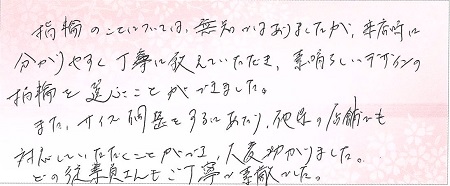 指輪のことについては、無知ではありましたが、来店時に
分かりやすく丁寧に教えていただき、素晴らしいデザインの
指輪を選ぶことができました。
また、サイズ調整をするにあたり、他県の店舗でも
対応していただくことができ、大変助かりました。
どの従業員さんもご丁寧で素敵でした。